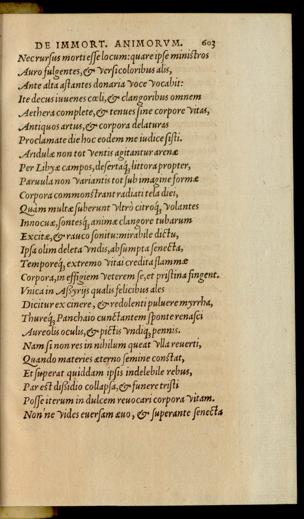 DE IMMORT. ANIMORVM. 603
Nec rursus morti esse locum: quare ipse ministros
Auro fulgentes, & versicoloribus alis,
Ante alta astantes donaria voce vocabit:
Ite decus iuuenes cœli, & clangoribus omnem
Aethera complete, & tenues sine corpore vitas,
Antiquos artus, & corpora delaturas
Proclamate die hoc eodem me iudice sisti.
Aridulæ non tot ventis agitantur arenæ
Per Libyæ campos, desertaq́; littora propter,
Paruula non variantis tot sub imagine formæ
Corpora commonstrant radiati tela diei,
Quàm multæ suberunt vltrò citroq́; volantes
Innocuæ, sontesq́; animæ clangore tubarum
Excitæ, & rauco sonitu: mirabile dictu,
Ipsa olim deleta vndis, absumpta senecta,
Temporeq́; extremo vitai credita flammæ
Corpora, in effigiem veterem se, et pristina fingent.
Vnica in Assyrijs qualis felicibus ales
Dicitur ex cinere, & redolenti puluere myrrha,
Thureq́; Panchaio cunctantem sponte renasci
Aureolis oculis, & pictis vndiq; pennis.
Nam si non res in nihilum queat vlla reuerti,
Quando materies æterno semine constat,
Et superat quiddam ipsis indelebile rebus,
Par est dissidio collapsa, & funere tristi
Posse iterum in dulcem reuocari corpora vitam.
Non'ne vides euersam æuo, & superante senecta